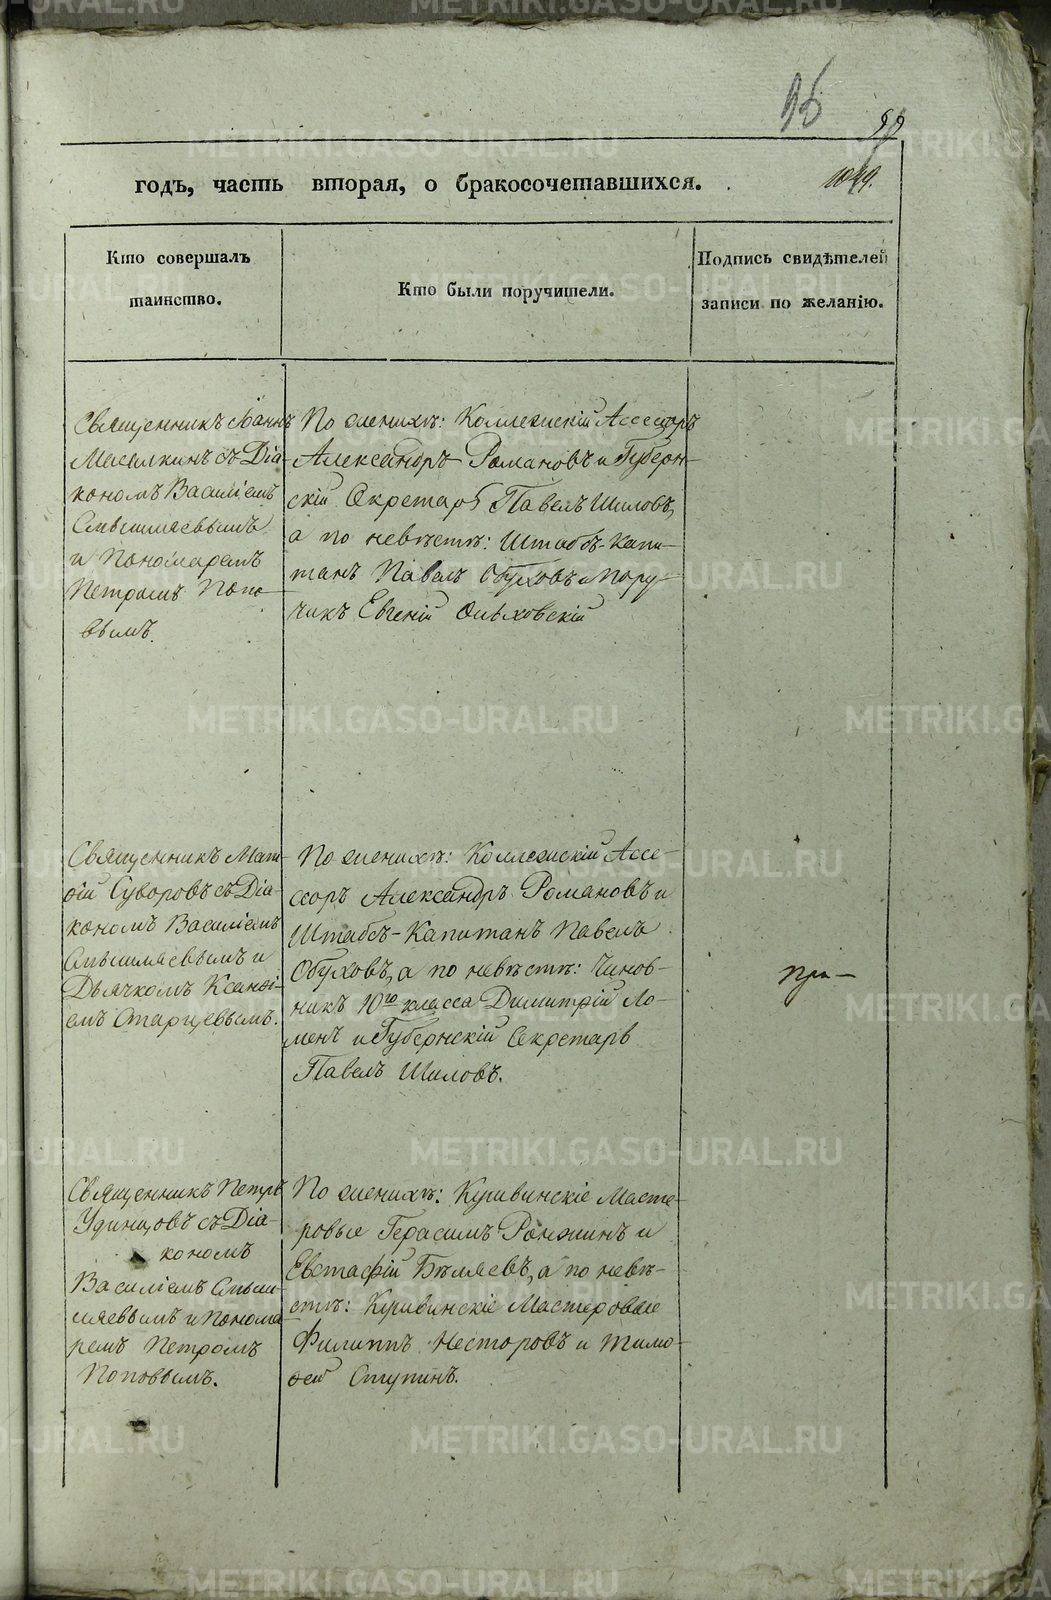 98
1049.
годъ, часть вторая, о бракосочетавшихся.
Кто совершалъ
таинство.
Кто были поручители.
Подпись свидѣтелей
записи по желанію.
Священникъ Іоаннъ
Масялкинъ съ Діа-
кономъ Василіемъ
Смышляевымъ
и Пономаремъ
Петромъ Попо-
вымъ.
По женихѣ: Коллежскій Ассесоръ
Александръ Романовъ и Губерн-
скій Секретарь Павелъ Шиловъ,
а по невѣстѣ: Штабсъ-Капи-
танъ Павелъ Обуховъ и Пору-
чикъ Евгеній Ольховскій
Священникъ Мат-
ѳій Суворовъ съ Діа-
кономъ Василіемъ
Смышляевымъ и
Дьячкомъ Ксенофі-
емъ Старцевымъ.
По женихѣ: Коллежскій Ассе-
ссоръ Александръ Романовъ и
Штабсъ-Капитанъ Павелъ
Обуховъ, а по невѣстѣ: Чинов-
никъ 10го класса Димитрій Ло-
менъ и Губернскій Секретарь
Павелъ Шиловъ.
при-
Священникъ Петръ
Удинцовъ съ Діа-
кономъ
Василіемъ Смыш-
ляевымъ и Понома
ремъ Петромъ
Поповымъ.
По женихѣ: Кушвинскіе Масте-
ровые Герасимъ Ронжинъ и
Евстафій Бѣляевъ, а по невѣ-
стѣ: Кушвинскіе Мастеровые
Филиппъ Несторовъ и Тимо-
ѳей Ступинъ.
METRIKI.GASO-URAL.RU